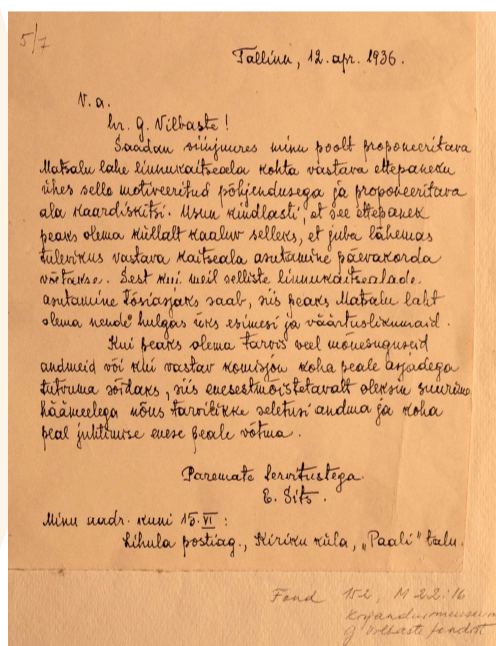 5/7
Tallinn, 12. apr. 1936.
V. a.
hr. G. Vilbaste!
Saadan siinjuures minu poolt proponeeritava
Matsalu lahe linnukaitseala kohta vastava ettepaneku
ühes selle motiveeritud põhjendusega ja proponeeritava
ala kaardiskitsi. Usun kindlasti, et see ettepanek
peaks olema küllalt kaaluv selleks, et juba lähemas
tulevikus vastava kaitseala asutamine päevakorda
võtakse. Sest kui meil selliste linnukaitsealade
asutamine tõsiasjaks saab, siis peaks Matsalu laht
olema nende hulgas üks esimesi ja väärtuslikumaid.
Kui peaks olema tarvis veel mõnesuguseid
andmeid või kui vastav komisjon koha peale asjadega
tutvuma sõidaks, siis enesestmõistetavalt oleksin suurima
häämeelega nõus tarvilikke seletusi andma ja koha
peal juhtimise enese peale võtma.
Paremate tervitustega
E. Sits.
Minu aadr. kuni 15. VI :
Lihula postiag., Kiriku küla, „Paali" talu.
Fond 152, M 22:16
Kirjandusmuuseum
G Vilbaste fondist